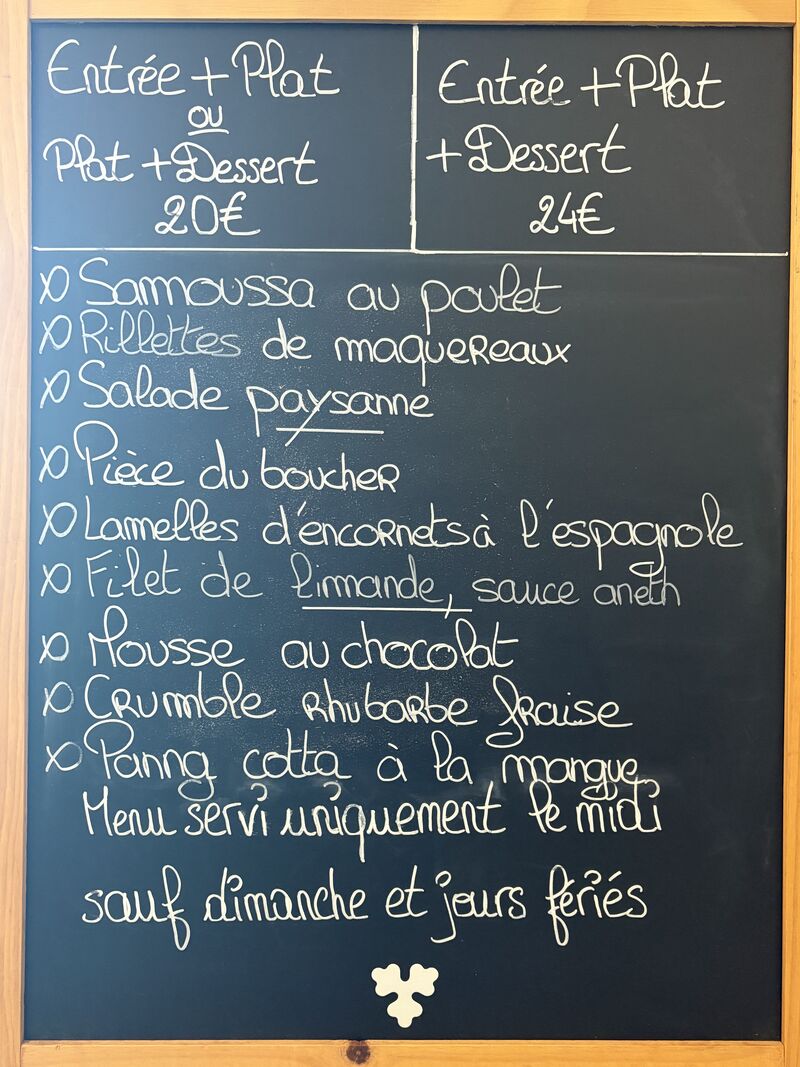 Entrée + Plat
ou
Plat + Dessert
20€
Entrée + Plat
+ Dessert
24€
x Samoussa au poulet
x Rillettes de maquereaux
x Salade paysanne
x Pièce du boucher
x Lamelles d'encornets à l'espagnole
x Filet de limande, sauce aneth
x Mousse au chocolat
x Crumble rhubarbe fraise
x Panna cotta à la mangue
Menu servi uniquement le midi
sauf dimanche et jours fériés